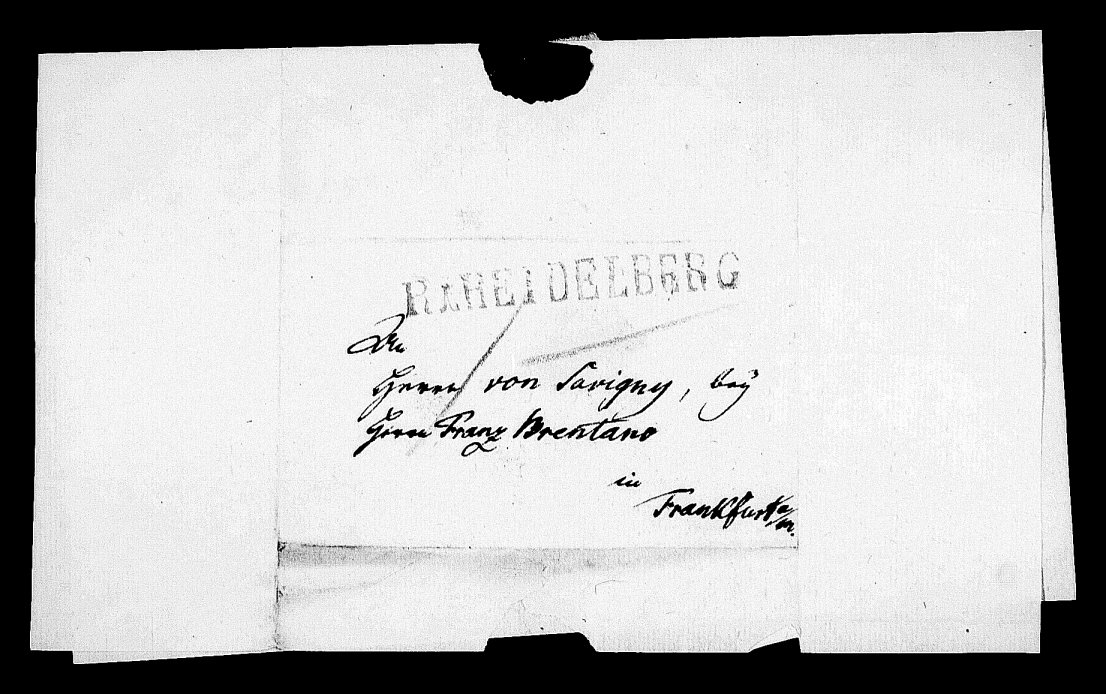 R.1.HEIDELBERG
An
Herrn von Savigny, bey
Herrn Franz Brentano
in
Frankfurt a/m.